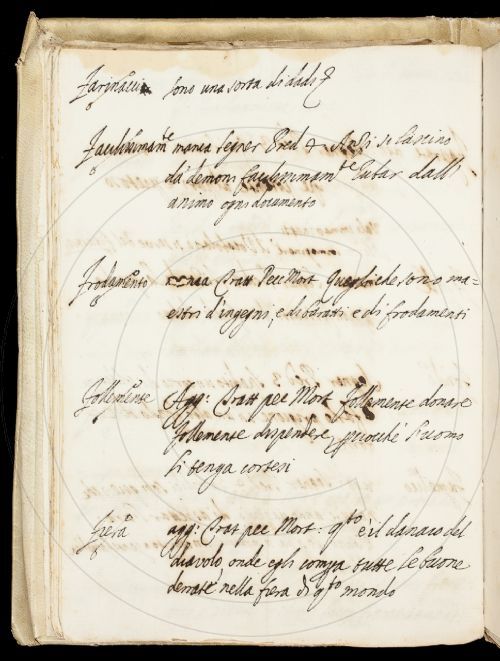 Farinaccia sono una sorta di dadi
Facilissimam.te manca Segner Pred
da demoni facilissimam.te dall
animo ogni documento
Frodamento manca Tratt Pecc Mort Quegli che sono ma=
estri d'ingegni, e di baratti e di frodamenti
Follemente Agg: Tratt pec Mort follemente donare
follemente dispendere, perocchè l'uomo
li tenga cortesi
Fiera agg: Trat pec Mort: q.to è il danaro del
diavolo, onde egli compra tutte le buone
derrate nella fiera di q.to mondo